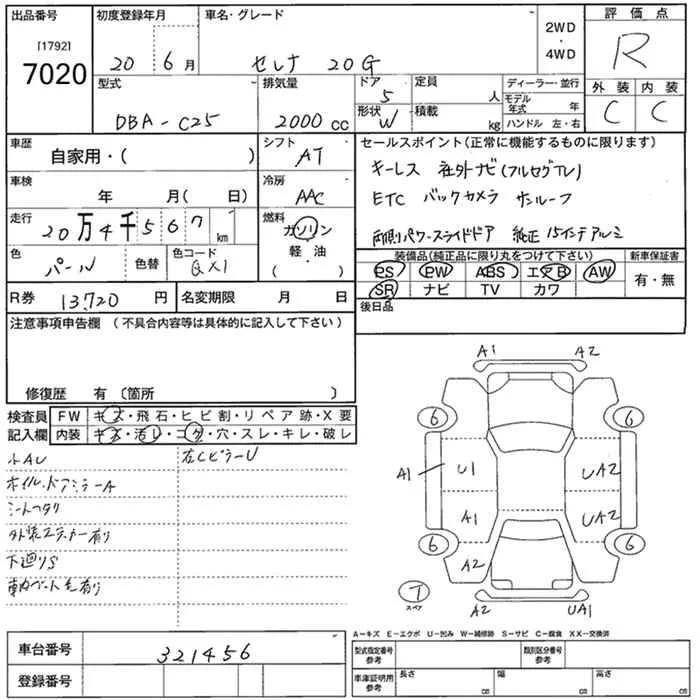 出品番号
[1792]
7020
初度登録年月
20 6月
車名・グレード
セレナ 20G
2WD
・
4WD
評価点
R
外装 内装
C C
型式
DBA-C25
排気量
2000cc
ドア
5
形状
W
定員
人
積載
kg
ディーラー・並行
モデル年式 年
ハンドル 左・右
車歴
自家用・( )
シフト
AT
車検
年 月( 日)
冷房
AAC
走行
20万4千567km
燃料
ガソリン
軽・油
( )
色
パール
色替
色コード
QX1
セールスポイント(正常に機能するものに限ります)
キーレス 社外ナビ(フルセグTV)
ETC バックカメラ サンルーフ
両側パワースライドドア 純正15インチアルミ
装備品(純正品に限り丸をつけて下さい)
PS PW ABS エアB AW
SR ナビ TV カワ
新車保証書
有・無
R券 13720円
名変期限 月 日
後日品
注意事項申告欄 (不具合内容等は具体的に記入して下さい)
修復歴 有 〔箇所 〕
検査員記入欄
FW キズ・飛石・ヒビ割・リペア跡・X要
内装 キズ・汚レ・コゲ・穴・スレ・キレ・破レ
小AU
左CピラーU
ホイル、ドアミラーA
シートヘタリ
外装ステッカー有り
下廻りS
車内ペット毛有り
A1 A2
6 6
A1 U1 UA2
A1 UA2
6 6
A2
7
スペア
A2 UA1
A-キズ E-エクボ U-凹み W-補修跡 S-サビ C-腐食 XX-交換済
車台番号 321456
登録番号
型式指定番号
参考
類別区分番号
参考
車庫証明用
参考
長さ cm
幅 cm
高さ cm